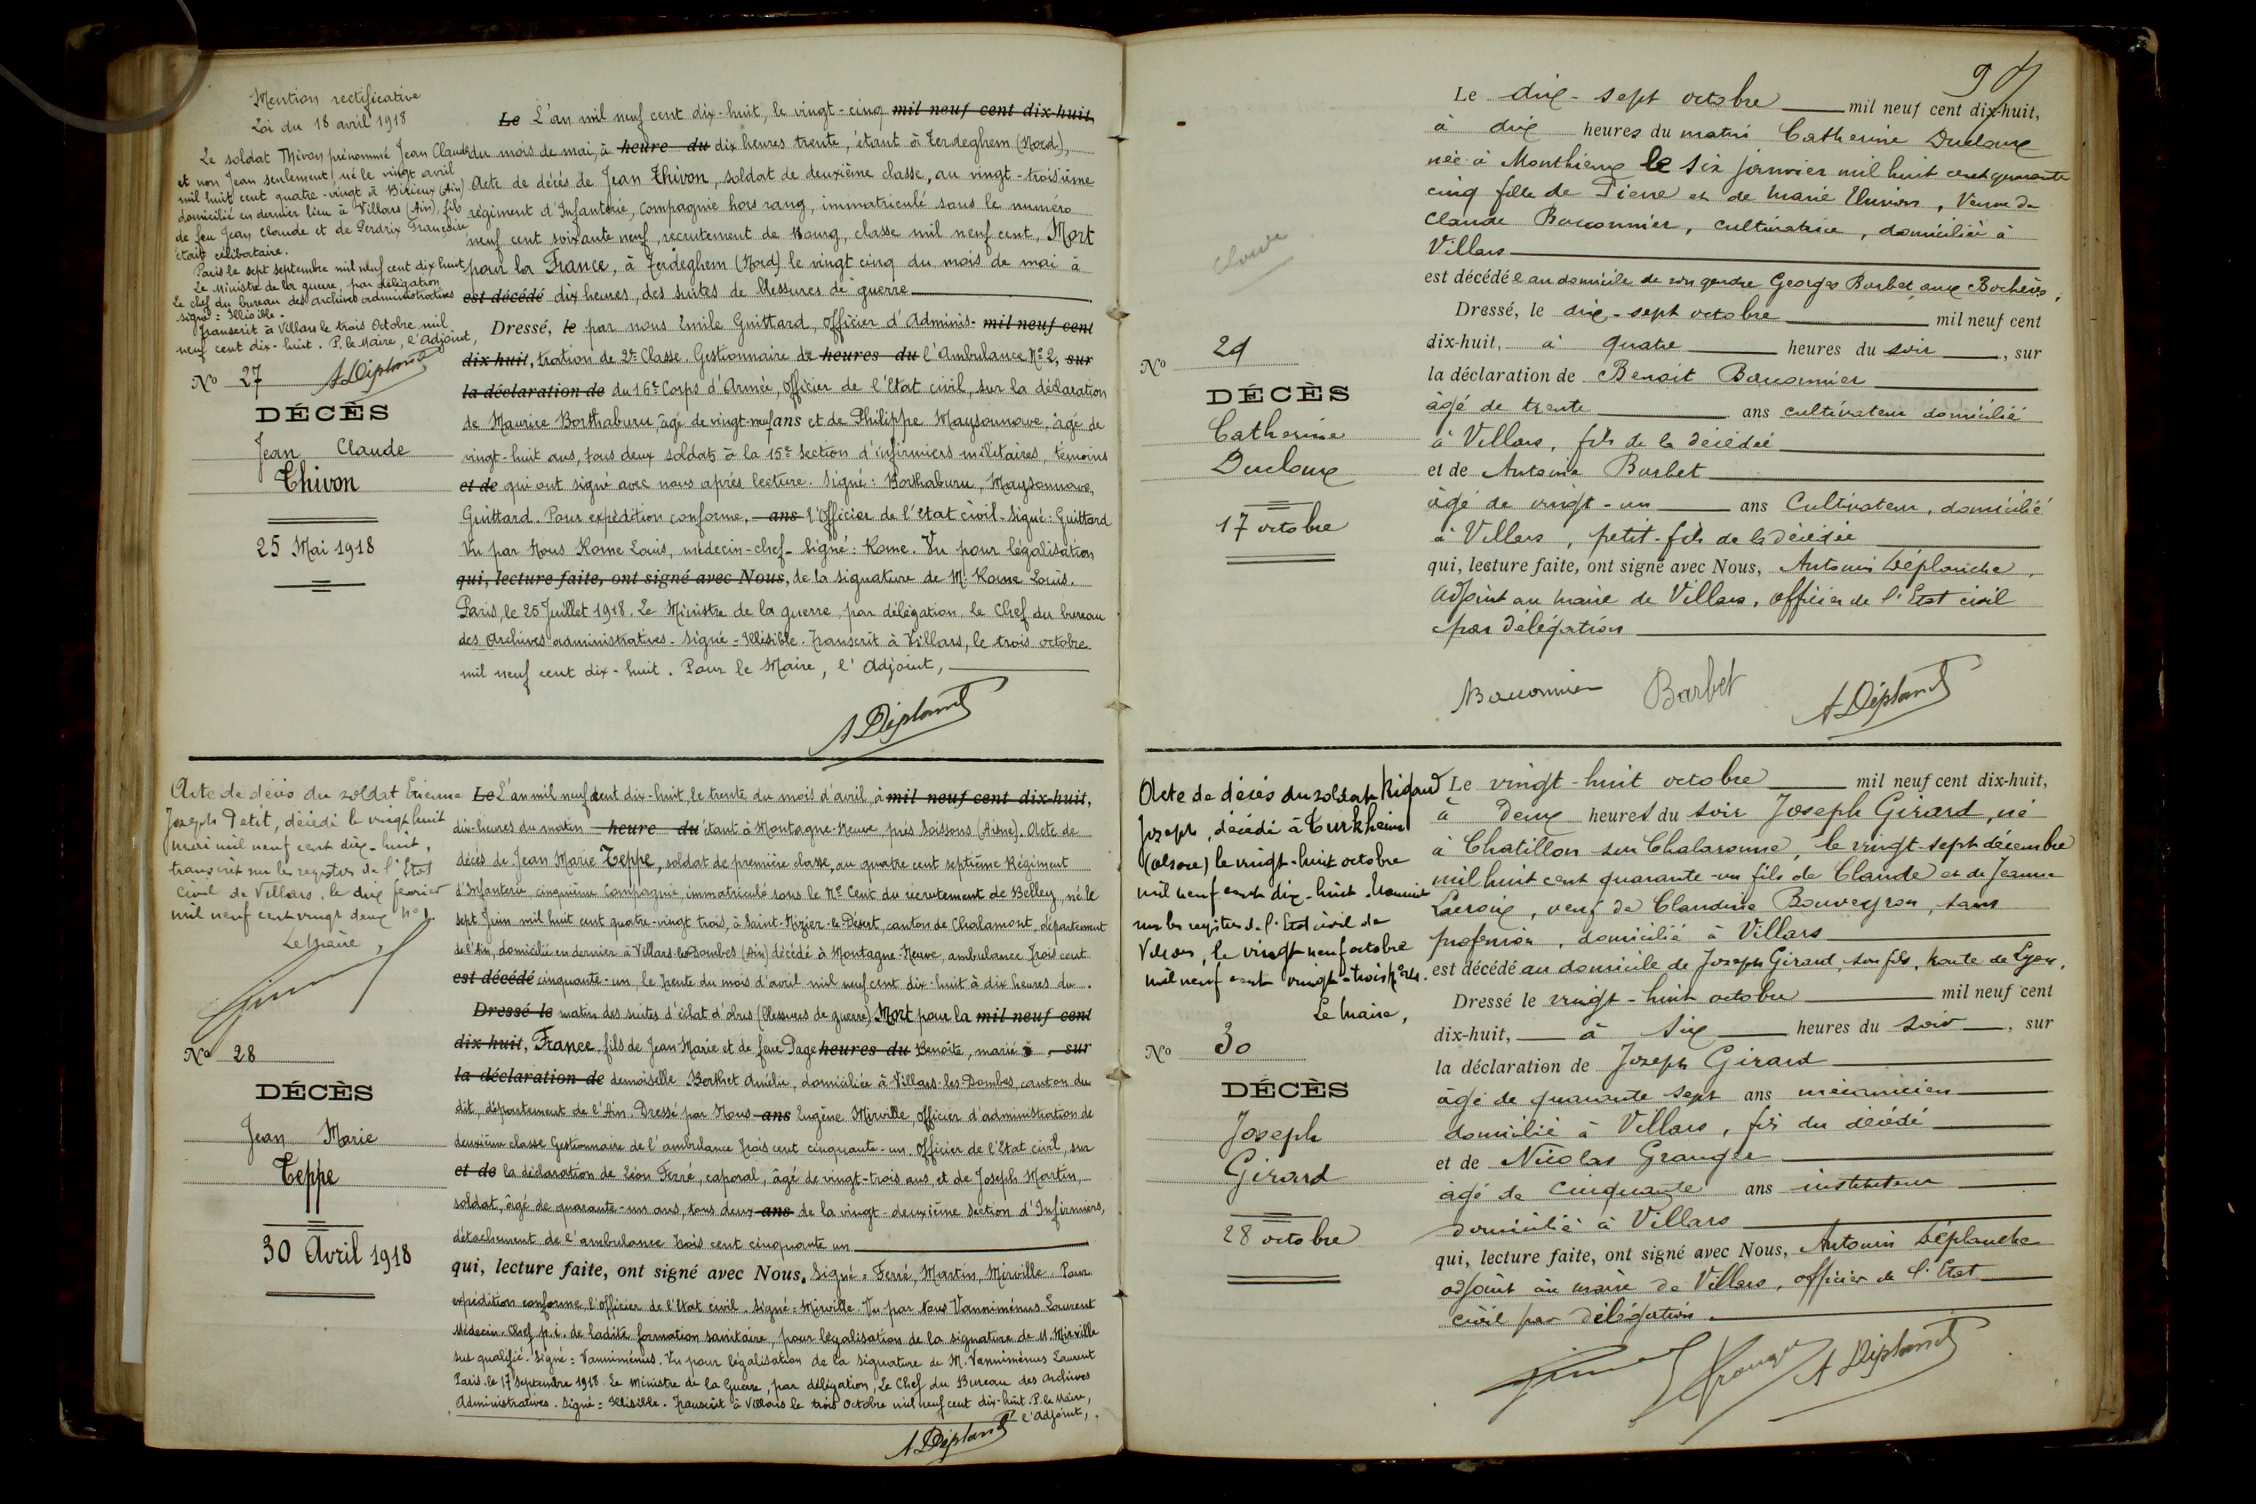 Mention rectificative
Loi du 18 avril 1918
Le soldat Thivon prénommé Jean Claude
et non Jean seulement, né le vingt avril
mil huit cent quatre-vingt à Birieux (Ain)
domicilié en dernier lieu à Villars (Ain), fils
de feu Jean Claude et de Perdrix Françoise
était célibataire.
Paris le sept septembre mil neuf cent dix huit
Le Ministre de la guerre, par délégation
Le chef du bureau des archives administratives
signé = Illisible.
Transcrit à Villars le trois Octobre mil
neuf cent dix-huit. P. le Maire, l'Adjoint,
A Déplanch
No 27
DÉCÈS
Jean Claude
Thivon
25 Mai 1918
Le L'an mil neuf cent dix-huit, le vingt-cinq mil neuf cent dix-huit,
du mois de mai, à heure du dix heures trente, étant à Terdeghem (Nord),
Acte de décès de Jean Thivon, soldat de deuxième classe, au vingt-troisième
régiment d'Infanterie, compagnie hors rang, immatriculé sous le numéro
neuf cent soixante neuf, recrutement de Bourg, classe mil neuf cent, Mort
pour la France, à Terdeghem (Nord) le vingt cinq du mois de mai à
est décédé dix heures, des suites de blessures de guerre
Dressé, le par nous Emile Guittard, officier d'Adminis- mil neuf cent
dix-huit, tration de 2e Classe. Gestionnaire de heures du l'Ambulance No 2, sur
la déclaration de du 16e Corps d'Armée, officier de l'Etat civil, sur la déclaration
de Maurice Borthaburu, âgé de vingt-neuf ans et de Philippe Maysounave, âgé de
vingt-huit ans, tous deux soldats à la 15e section d'infirmiers militaires, témoins
et de qui ont signé avec nous après lecture. Signé: Borthaburu, Maysounave,
Guittard. Pour expédition conforme, ans l'Officier de l'Etat civil. Signé: Guittard
Vu par Nous Kome Louis, médecin-chef. Signé: Kome. Vu pour légalisation
qui, lecture faite, ont signé avec Nous, de la signature de M. Kome Louis.
Paris, le 25 Juillet 1918. Le Ministre de la guerre, par délégation, le Chef du bureau
des Archives administratives. Signé = Illisible. Transcrit à Villars, le trois octobre
mil neuf cent dix-huit. Pour le Maire, l'Adjoint,
A Déplanch
Acte de décès du soldat Etienne
Joseph Petit, décédé le vingt huit
mai mil neuf cent dix-huit,
transcrit sur les registres de l'Etat
Civil de Villars, le dix février
mil neuf cent vingt deux No 1.
Le Maire,
No 28
DÉCÈS
Jean Marie
Teppe
30 Avril 1918
Le L'an mil neuf cent dix-huit, le trente du mois d'avril, à mil neuf cent dix-huit,
dix-heures du matin heure du étant à Montagne-Neuve près Soissons (Aisne). Acte de
décès de Jean Marie Teppe, soldat de première classe, au quatre cent septième Régiment
d'Infanterie, cinquième compagnie, immatriculé sous le No Cent du recrutement de Belley, né le
sept Juin mil huit cent quatre-vingt trois, à Saint-Nizier-le-Désert, canton de Chalamont, département
de l'Ain, domicilié en dernier à Villars-les-Dombes (Ain) décédé à Montagne-Neuve, ambulance trois cent
est décédé cinquante-un, le trente du mois d'avril mil neuf cent dix-huit à dix heures du
Dressé le matin des suites d'éclat d'obus (blessures de guerre) Mort pour la mil neuf cent
dix-huit, France, fils de Jean Marie et de feue Page heures du Benoîte, marié à sur
la déclaration de demoiselle Berthet Amélie, domiciliée à Villars-les-Dombes, canton du
dit, département de l'Ain. Dressé par Nous ans Eugène Mirville, officier d'administration de
deuxième classe Gestionnaire de l'ambulance trois cent cinquante-un. Officier de l'Etat civil, sur
et de la déclaration de Léon Ferré, caporal, âgé de vingt-trois ans, et de Joseph Martin,
soldat, âgé de quarante-un ans, tous deux ans de la vingt-deuxième section d'Infirmiers,
détachement de l'ambulance trois cent cinquante un
qui, lecture faite, ont signé avec Nous. Signé = Ferré, Martin, Mirville. Pour
expédition conforme, l'officier de l'Etat civil. Signé = Mirville. Vu par Nous Vanniménus Laurent
Médecin-Chef p.i. de ladite formation sanitaire, pour légalisation de la signature de M. Mirville
sus qualifié. Signé = Vanniménus. Vu pour légalisation de la signature de M. Vanniménus Laurent
Paris le 17 Septembre 1918. Le Ministre de la Guerre, par délégation, Le Chef du Bureau des Archives
Administratives. Signé = Illisible. Transcrit à Villars le trois Octobre mil neuf cent dix-huit. P. le Maire,
l'Adjoint,
A Déplanch
No 29
DÉCÈS
Catherine
Ducloux
17 octobre
Le dix-sept octobre mil neuf cent dix-huit,
à dix heures du matin Catherine Ducloux
née à Monthieux le six janvier mil huit cent quarante
cinq fille de Pierre et de Marie Thivon, Veuve de
Claude Bouconnier, cultivatrice, domiciliée à
Villars
est décédée au domicile de son gendre Georges Barbet, aux Bochères,
Dressé, le dix-sept octobre mil neuf cent
dix-huit, à quatre heures du soir, sur
la déclaration de Benoit Bouconnier
âgé de trente ans cultivateur domicilié
à Villars, fils de la décédée
et de Antoine Barbet
âgé de vingt-un ans Cultivateur, domicilié
à Villars, petit-fils de la décédée
qui, lecture faite, ont signé avec Nous, Antonin Déplanche,
adjoint au maire de Villars, officier de l'Etat civil
par délégation
Bouconnier Barbet A Déplanch
Acte de décès du soldat Rigaud
Joseph, décédé à Turkheim
(Alsace) le vingt-huit octobre
mil neuf cent dix-huit. Transcrit
sur les registres de l'Etat civil de
Villars, le vingt neuf octobre
mil neuf cent vingt-trois No 24.
Le Maire,
No 30
DÉCÈS
Joseph
Girard
28 octobre
Le vingt-huit octobre mil neuf cent dix-huit,
à deux heures du soir Joseph Girard, né
à Chatillon sur Chalaronne, le vingt-sept décembre
mil huit cent quarante-un fils de Claude et de Jeanne
Lacroix, veuf de Claudine Bouveyron, sans
profession, domicilié à Villars
est décédé au domicile de Joseph Girard, son fils, route de Lyon.
Dressé le vingt-huit octobre mil neuf cent
dix-huit, à six heures du soir, sur
la déclaration de Joseph Girard
âgé de quarante sept ans mécanicien
domicilié à Villars, fils du décédé
et de Nicolas Grangée
âgé de cinquante ans instituteur
domicilié à Villars
qui, lecture faite, ont signé avec Nous, Antonin Déplanche
adjoint au maire de Villars, officier de l'Etat
civil par délégation.
A Déplanch